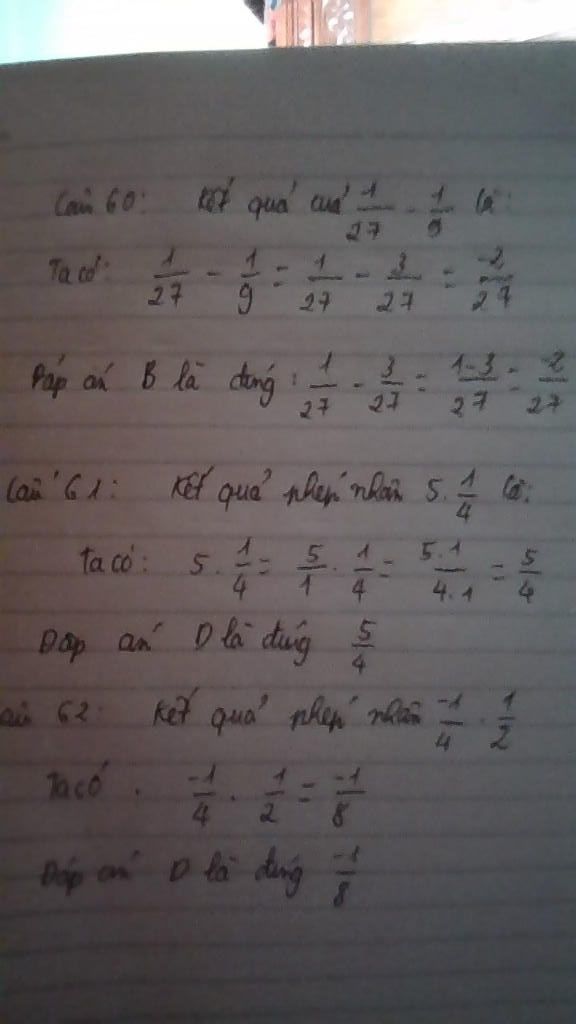 Câu 60: Kết quả của 1/27 - 1/9 là:
Ta có: 1/27 - 1/9 = 1/27 - 3/27 = -2/27
Đáp án B là đúng: 1/27 - 3/27 = 1-3/27 = -2/27
Câu 61: Kết quả phép nhân 5 . 1/4 là:
Ta có: 5 . 1/4 = 5/1 . 1/4 = 5.1/4.1 = 5/4
Đáp án D là đúng 5/4
âu 62: Kết quả phép nhân -1/4 . 1/2
Ta có . -1/4 . 1/2 = -1/8
Đáp án D là đúng -1/8